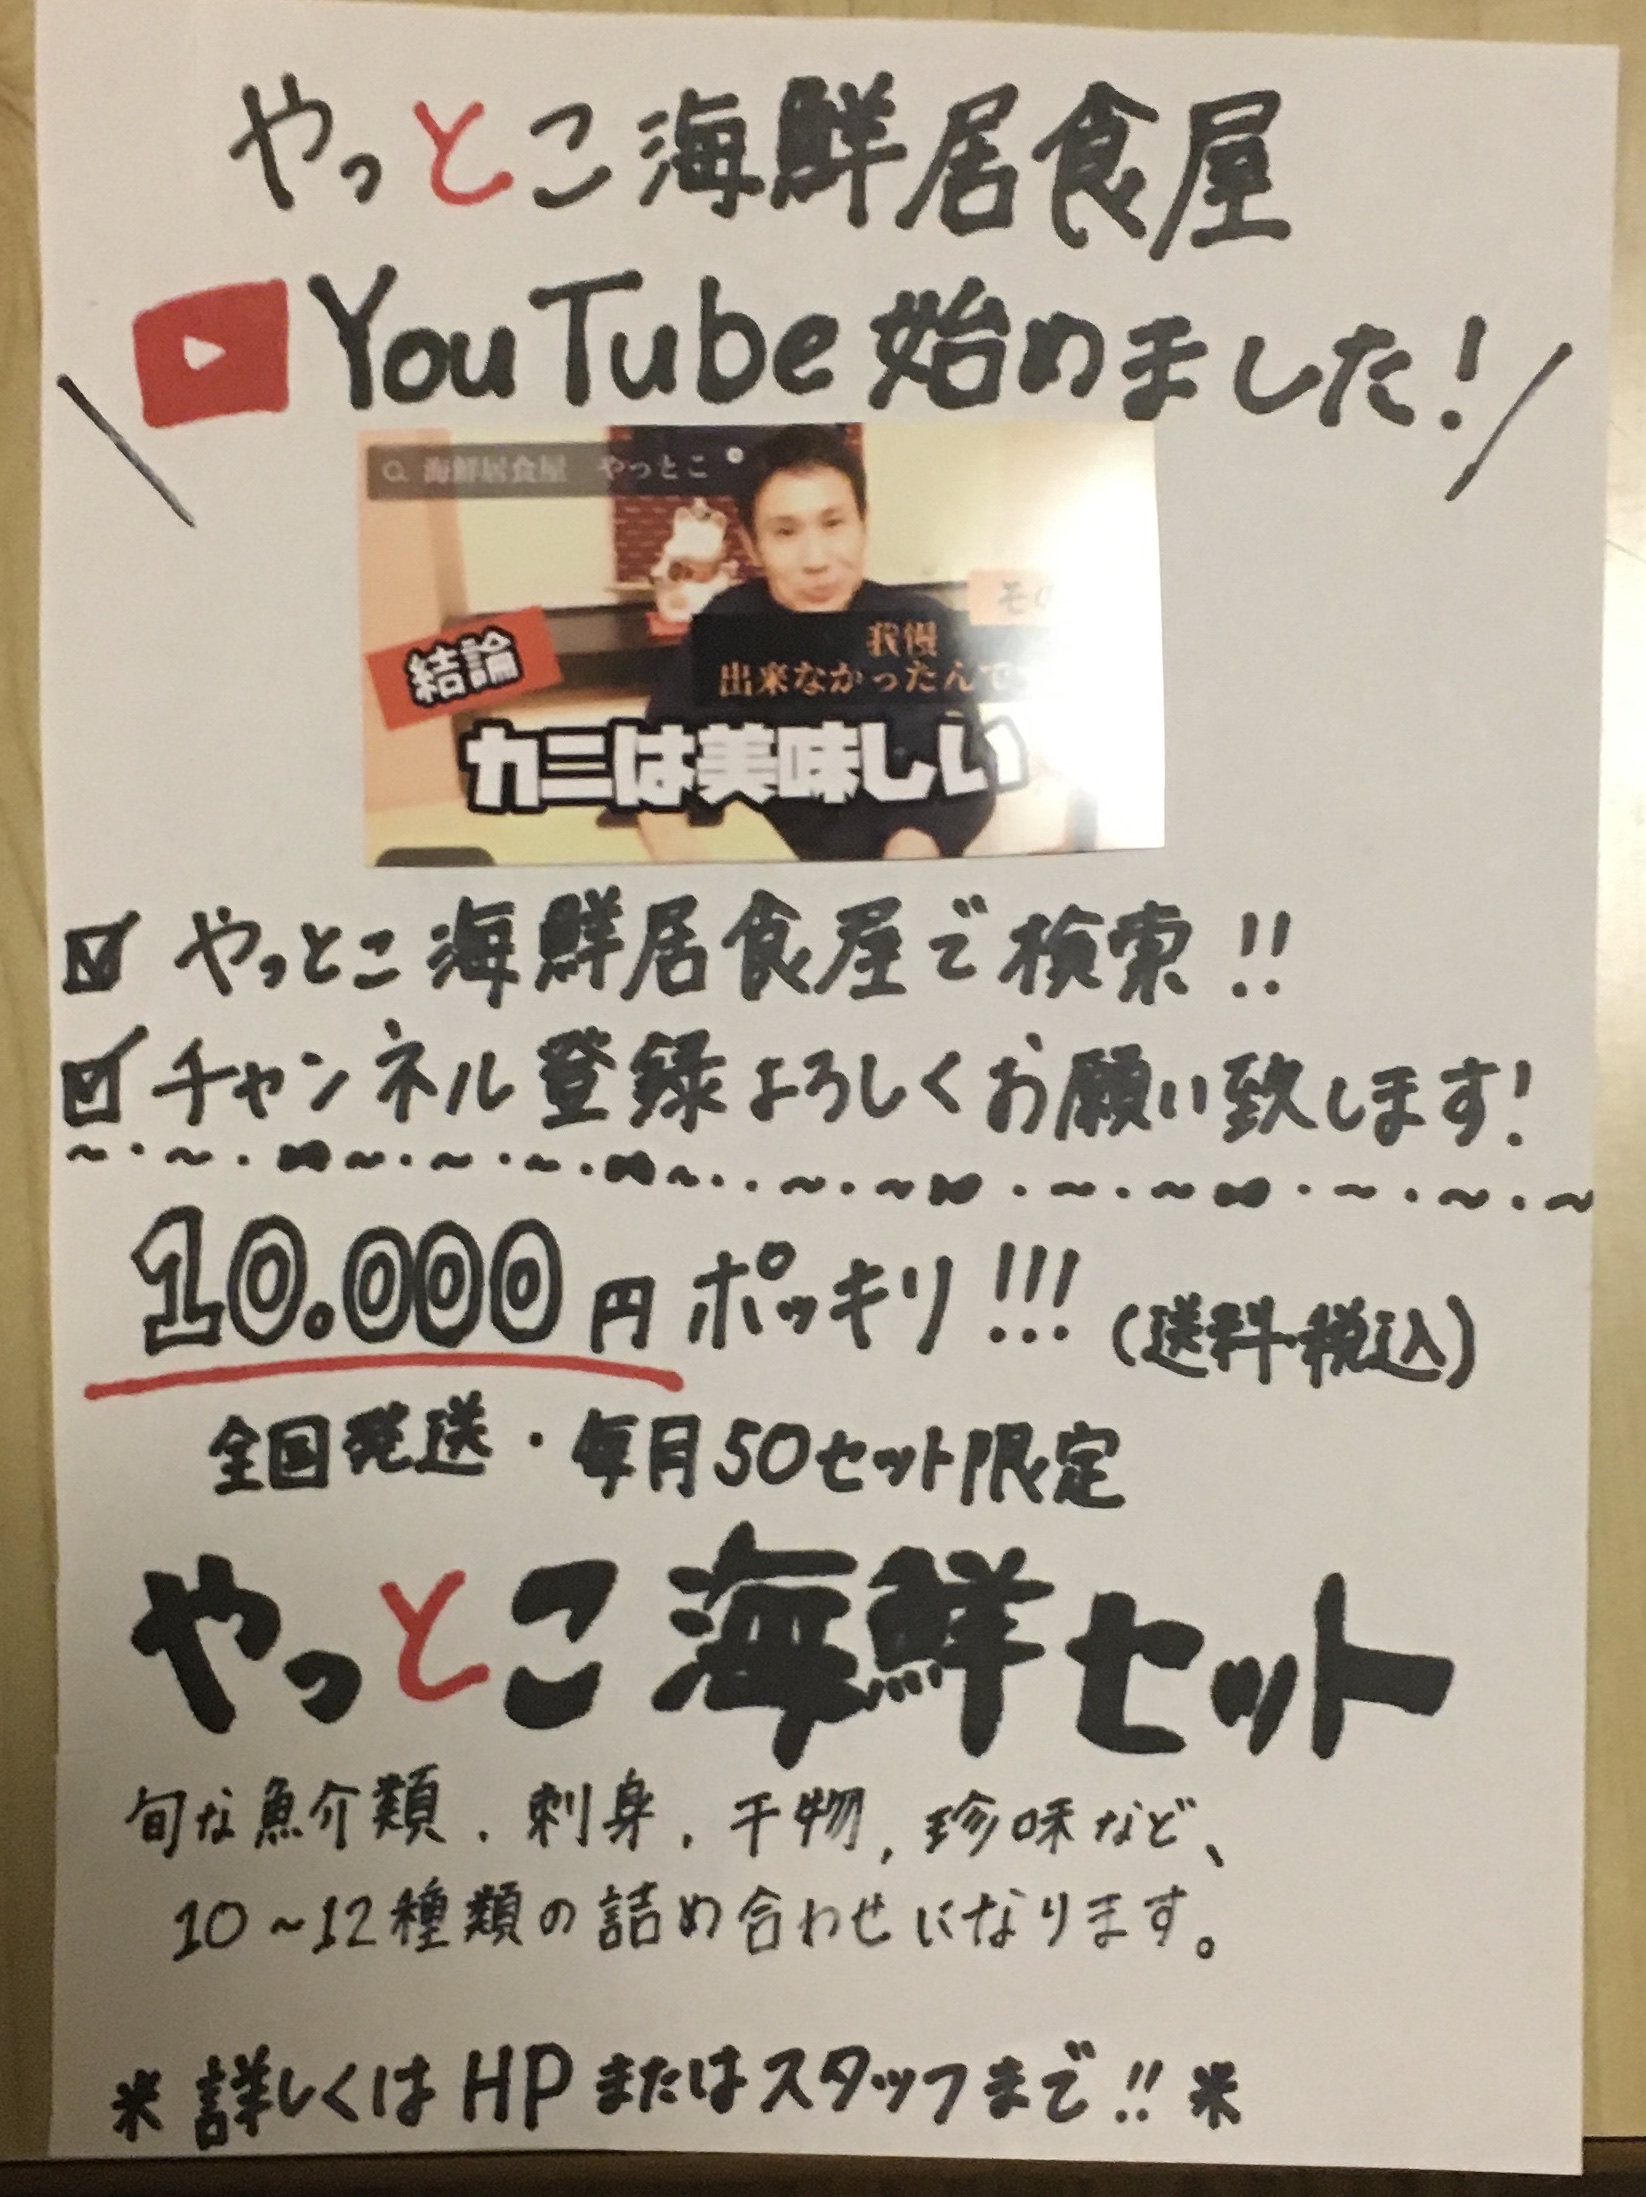 やっとこ海鮮居食屋
YouTube始めました!
海鮮居食屋 やっとこ
その
我慢
出来なかったんで
結論
カニは美味しい
やっとこ海鮮居食屋で検索!!
チャンネル登録よろしくお願い致します!
10.000円ポッキリ!!! (送料・税込)
全国発送・毎月50セット限定
やっとこ海鮮セット
旬な魚介類、刺身、干物、珍味など、
10~12種類の詰め合わせになります。
※詳しくはHPまたはスタッフまで!!※